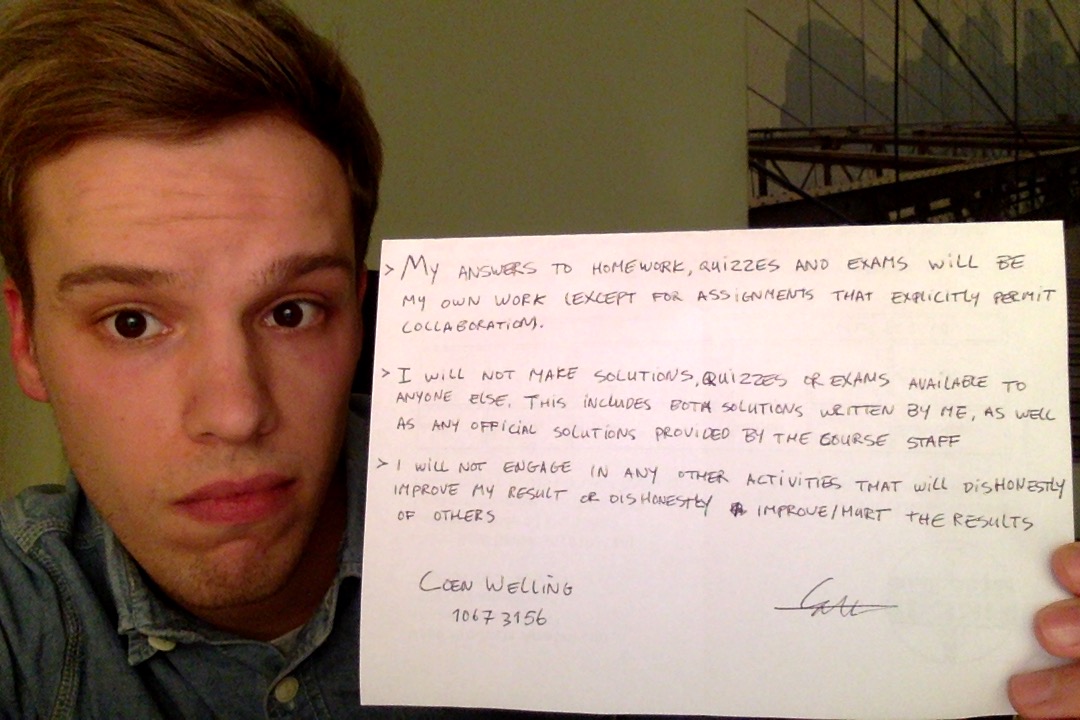 > MY ANSWERS TO HOMEWORK, QUIZZES AND EXAMS WILL BE
MY OWN WORK (EXCEPT FOR ASSIGNMENTS THAT EXPLICITLY PERMIT
COLLABORATION).
> I WILL NOT MAKE SOLUTIONS, QUIZZES OR EXAMS AVAILABLE TO
ANYONE ELSE. THIS INCLUDES BOTH SOLUTIONS WRITTEN BY ME, AS WELL
AS ANY OFFICIAL SOLUTIONS PROVIDED BY THE COURSE STAFF
> I WILL NOT ENGAGE IN ANY OTHER ACTIVITIES THAT WILL DISHONESTLY
IMPROVE MY RESULT OR DISHONESTLY IMPROVE/HURT THE RESULTS
OF OTHERS
COEN WELLING
10673156